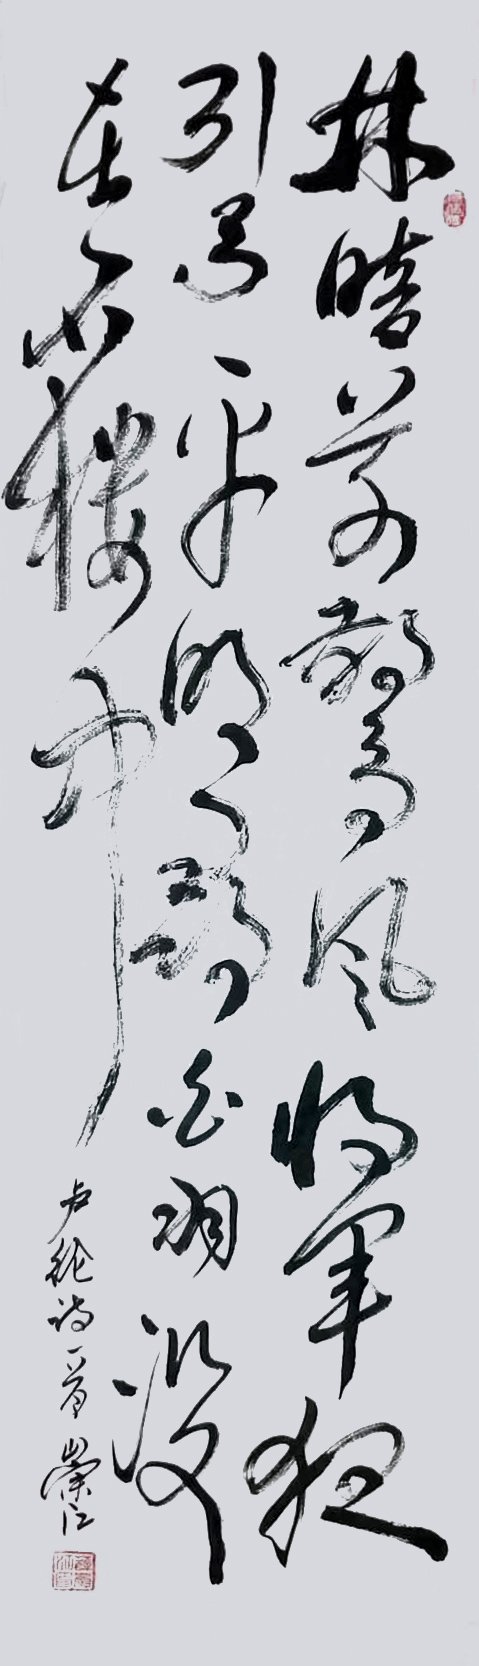 林暗草驚风将军夜
引弓平明尋白羽没
在石棱中
卢纶诗一首 崇江